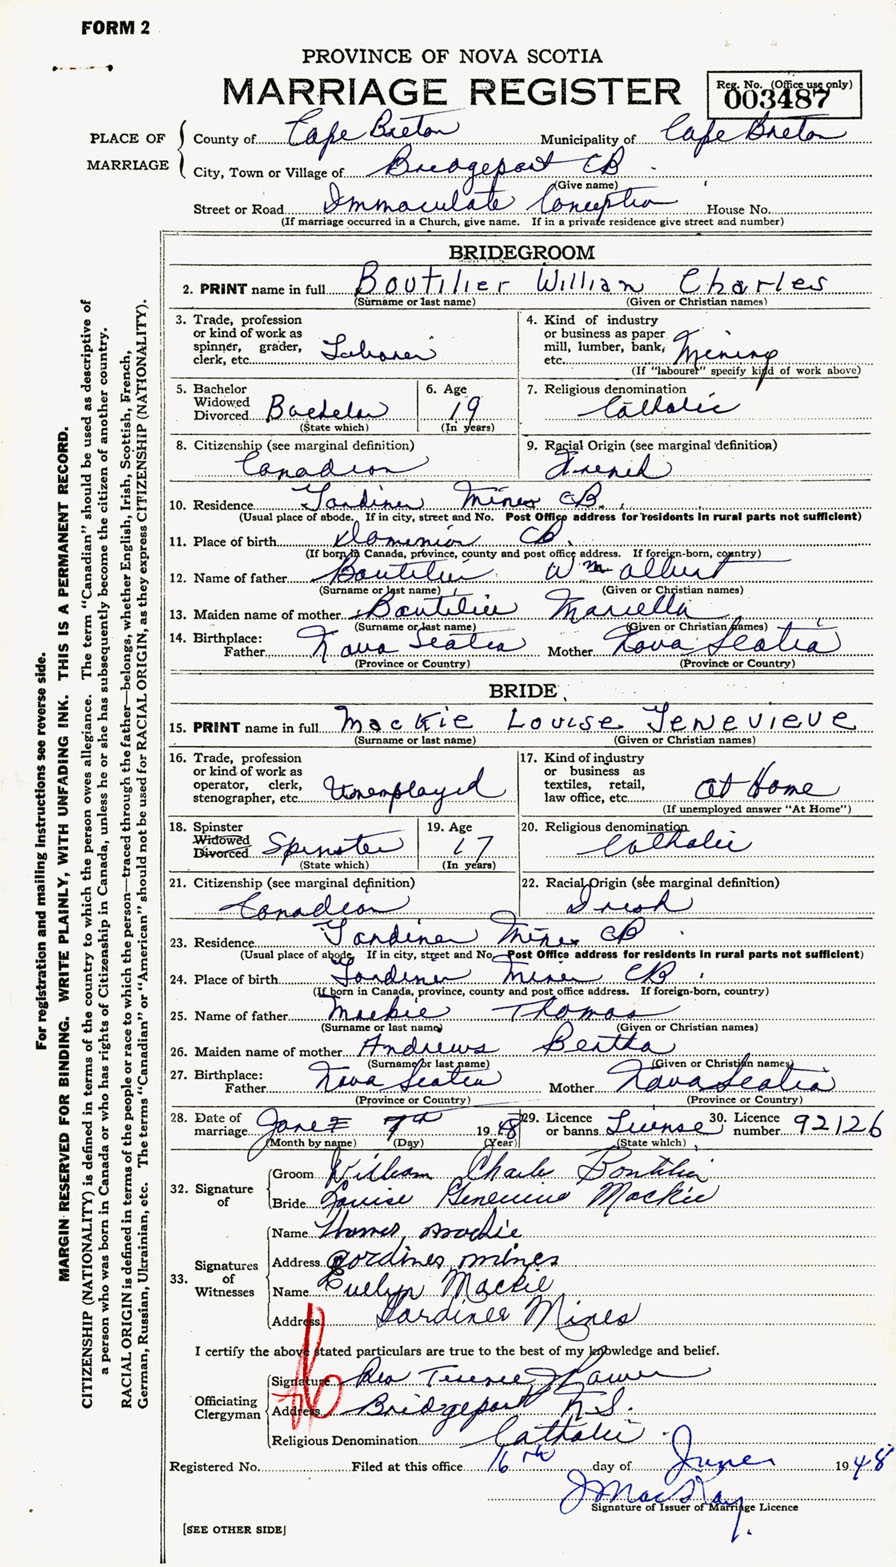 FORM 2
PROVINCE OF NOVA SCOTIA
MARRIAGE REGISTER
Reg. No. (Office use only)
003487
PLACE OF MARRIAGE
County of Cape Breton Municipality of Cape Breton
City, Town or Village of Bridgeport CB
(Give name)
Street or Road Immaculate Conception House No.
(If marriage occurred in a Church, give name. If in a private residence give street and number)
BRIDEGROOM
2. PRINT name in full Boutilier William Charles
(Surname or last name) (Given or Christian names)
3. Trade, profession or kind of work as spinner, grader, clerk, etc. Laborer
4. Kind of industry or business as paper mill, lumber, bank, etc. Mining
(If "labourer" specify kind of work above)
5. Bachelor Widowed Divorced Bachelor
(State which)
6. Age 19
(In years)
7. Religious denomination Catholic
8. Citizenship (see marginal definition) Canadian
9. Racial Origin (see marginal definition) French
10. Residence Gardiner Mines CB.
(Usual place of abode. If in city, street and No. Post Office address for residents in rural parts not sufficient)
11. Place of birth Dominion CB.
(If born in Canada, province, county and post office address. If foreign-born, country)
12. Name of father Boutilier Wm Albert
(Surname or last name) (Given or Christian names)
13. Maiden name of mother Boutilier Mariella
(Surname or last name) (Given or Christian names)
14. Birthplace: Father Nova Scotia Mother Nova Scotia
(Province or Country) (Province or Country)
BRIDE
15. PRINT name in full Mackie Louise Genevieve
(Surname or last name) (Given or Christian names)
16. Trade, profession or kind of work as operator, clerk, stenographer, etc. Unemployed
17. Kind of industry or business as textiles, retail, law office, etc. At Home
(If unemployed answer "At Home")
18. Spinster Widowed Divorced Spinster
(State which)
19. Age 17
(In years)
20. Religious denomination Catholic
21. Citizenship (see marginal definition) Canadian
22. Racial Origin (see marginal definition) Irish
23. Residence Gardiner Mines CB
(Usual place of abode. If in city, street and No. Post Office address for residents in rural parts not sufficient)
24. Place of birth Gardiner Mines CB.
(If born in Canada, province, county and post office address. If foreign-born, country)
25. Name of father Mackie Thomas
(Surname or last name) (Given or Christian names)
26. Maiden name of mother Andrews Bertha
(Surname or last name) (Given or Christian names)
27. Birthplace: Father Nova Scotia Mother Nova Scotia
(Province or Country) (Province or Country)
28. Date of marriage June 7th 1948
(Month by name) (Day) (Year)
29. Licence or banns License
(State which)
30. Licence number 92126
32. Signature of
Groom William Charles Boutilier
Bride Louise Genevieve Mackie
33. Signatures of Witnesses
Name Thomas Mackie
Address gardines mines
Name Evelyn Mackie
Address Gardiner Mines
I certify the above stated particulars are true to the best of my knowledge and belief.
Officiating Clergyman
Signature Rev Terence J Power
Address Bridgeport N.S.
Religious Denomination Catholic
Registered No. Filed at this office 16th day of June 1948
J MacKay
Signature of Issuer of Marriage Licence
[SEE OTHER SIDE]
For registration and mailing instructions see reverse side.
MARGIN RESERVED FOR BINDING. WRITE PLAINLY, WITH UNFADING INK. THIS IS A PERMANENT RECORD.
CITIZENSHIP (NATIONALITY) is defined in terms of the country to which the person owes allegiance. The term "Canadian" should be used as descriptive of
a person who was born in Canada or who has rights of Citizenship in Canada, unless he or she has subsequently become the citizen of another country.
RACIAL ORIGIN is defined in terms of the people or race to which the person—traced through the father—belongs, whether English, Irish, Scottish, French,
German, Russian, Ukrainian, etc. The terms "Canadian" or "American" should not be used for RACIAL ORIGIN, as they express CITIZENSHIP (NATIONALITY).